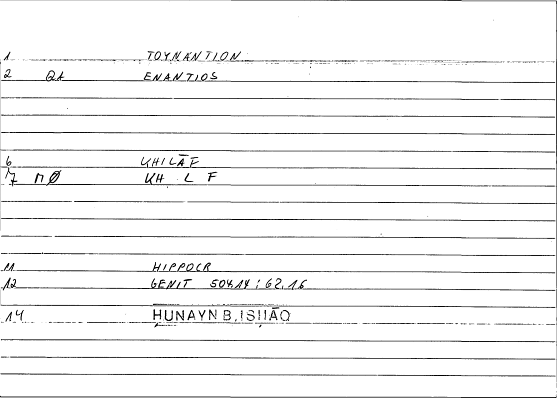 1 TOYNANTION
2 QA ENANTIOS
6 KHILĀF
7 MØ KH L F
11 HIPPOCR
12 GENIT 504.14 ; 62.16
14 ḤUNAYN B. ISḤĀQ